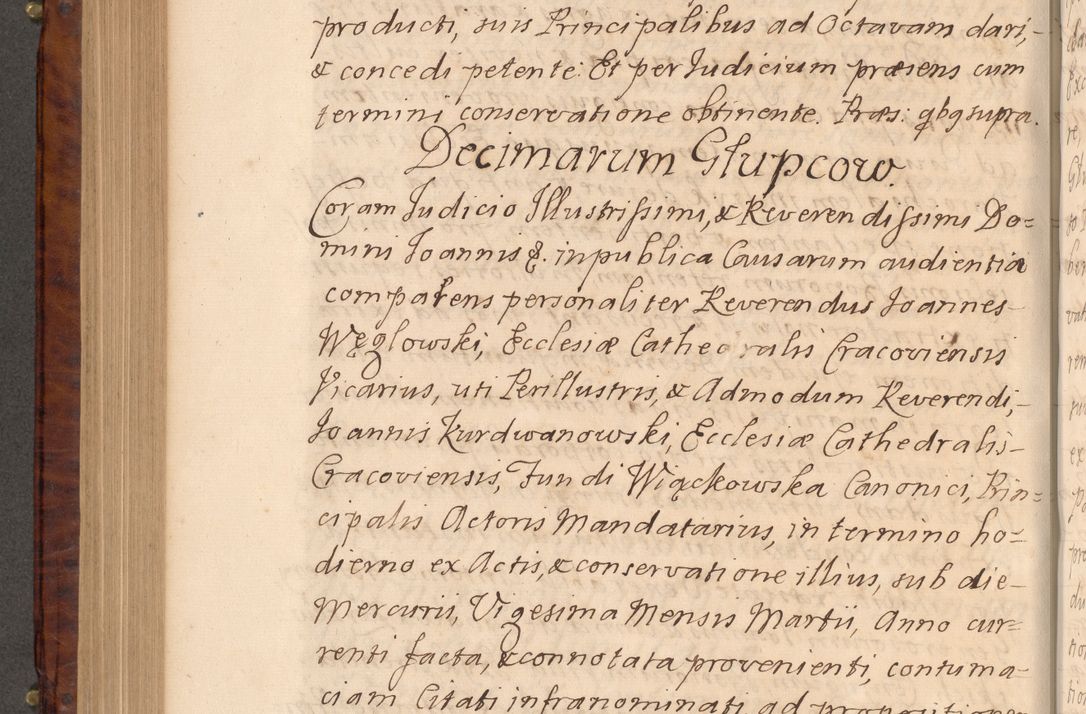 producti, suis Principalibus ad Octavam dari,-
& concedi petente: Et per Iudicium præsens cum
termini conservatione obtinente. Præs: qbg supra.
Decimarum Głupcow.
Coram Iudicio Illustrissimi, & Reverendissimi Do=
mini Ioannis &. in publica Causarum audientia
comparens personaliter Reverendus Ioannes-
Węglowski, Ecclesiæ Cathedralis Cracoviensis
Vicarius, uti Perillustris, & Admodum Reverendi,-
Ioannis Kurdwanowski, Ecclesiæ Cathedralis-
Cracoviensis, Fundi Wiąckowska Canonici, Prin=
cipalis Actoris Mandatarius, in termino ho=
dierno ex Actis, & conservatione illius, sub die-
Mercurii, Vigesima Mensis Martii, Anno cur=
renti facta, & connotata provenienti, contuma-
ciam Citati infranominati ad propositionem